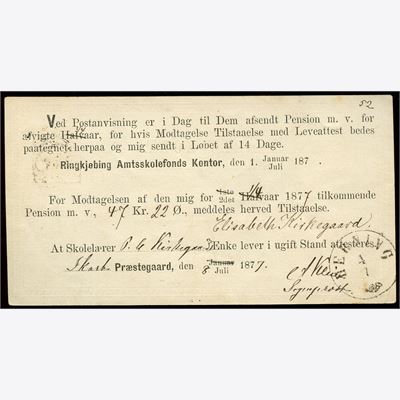 52
Ved Postanvisning er i Dag til Dem afsendt Pension m. v. for
afvigte Halvaar, for hvis Modtagelse Tilstaaelse med Leveattest bedes
paategnet herpaa og mig sendt i Løbet af 14 Dage.
Ringkjøbing Amtsskolefonds Kontor, den 1. Januar
Juli 187 .
For Modtagelsen af den mig for 1ste
2det Halvaar 1877 tilkommende
Pension m. v., 47 Kr. 22 Ø., meddeles herved Tilstaaelse.
Elisabeth Kirkegaard.
At Skolelærer P. C Kirkegaards Enke lever i ugift Stand attesteres.
Præstegaard, den 8 Januar
Juli 1877.
Sognepræst
HERNING